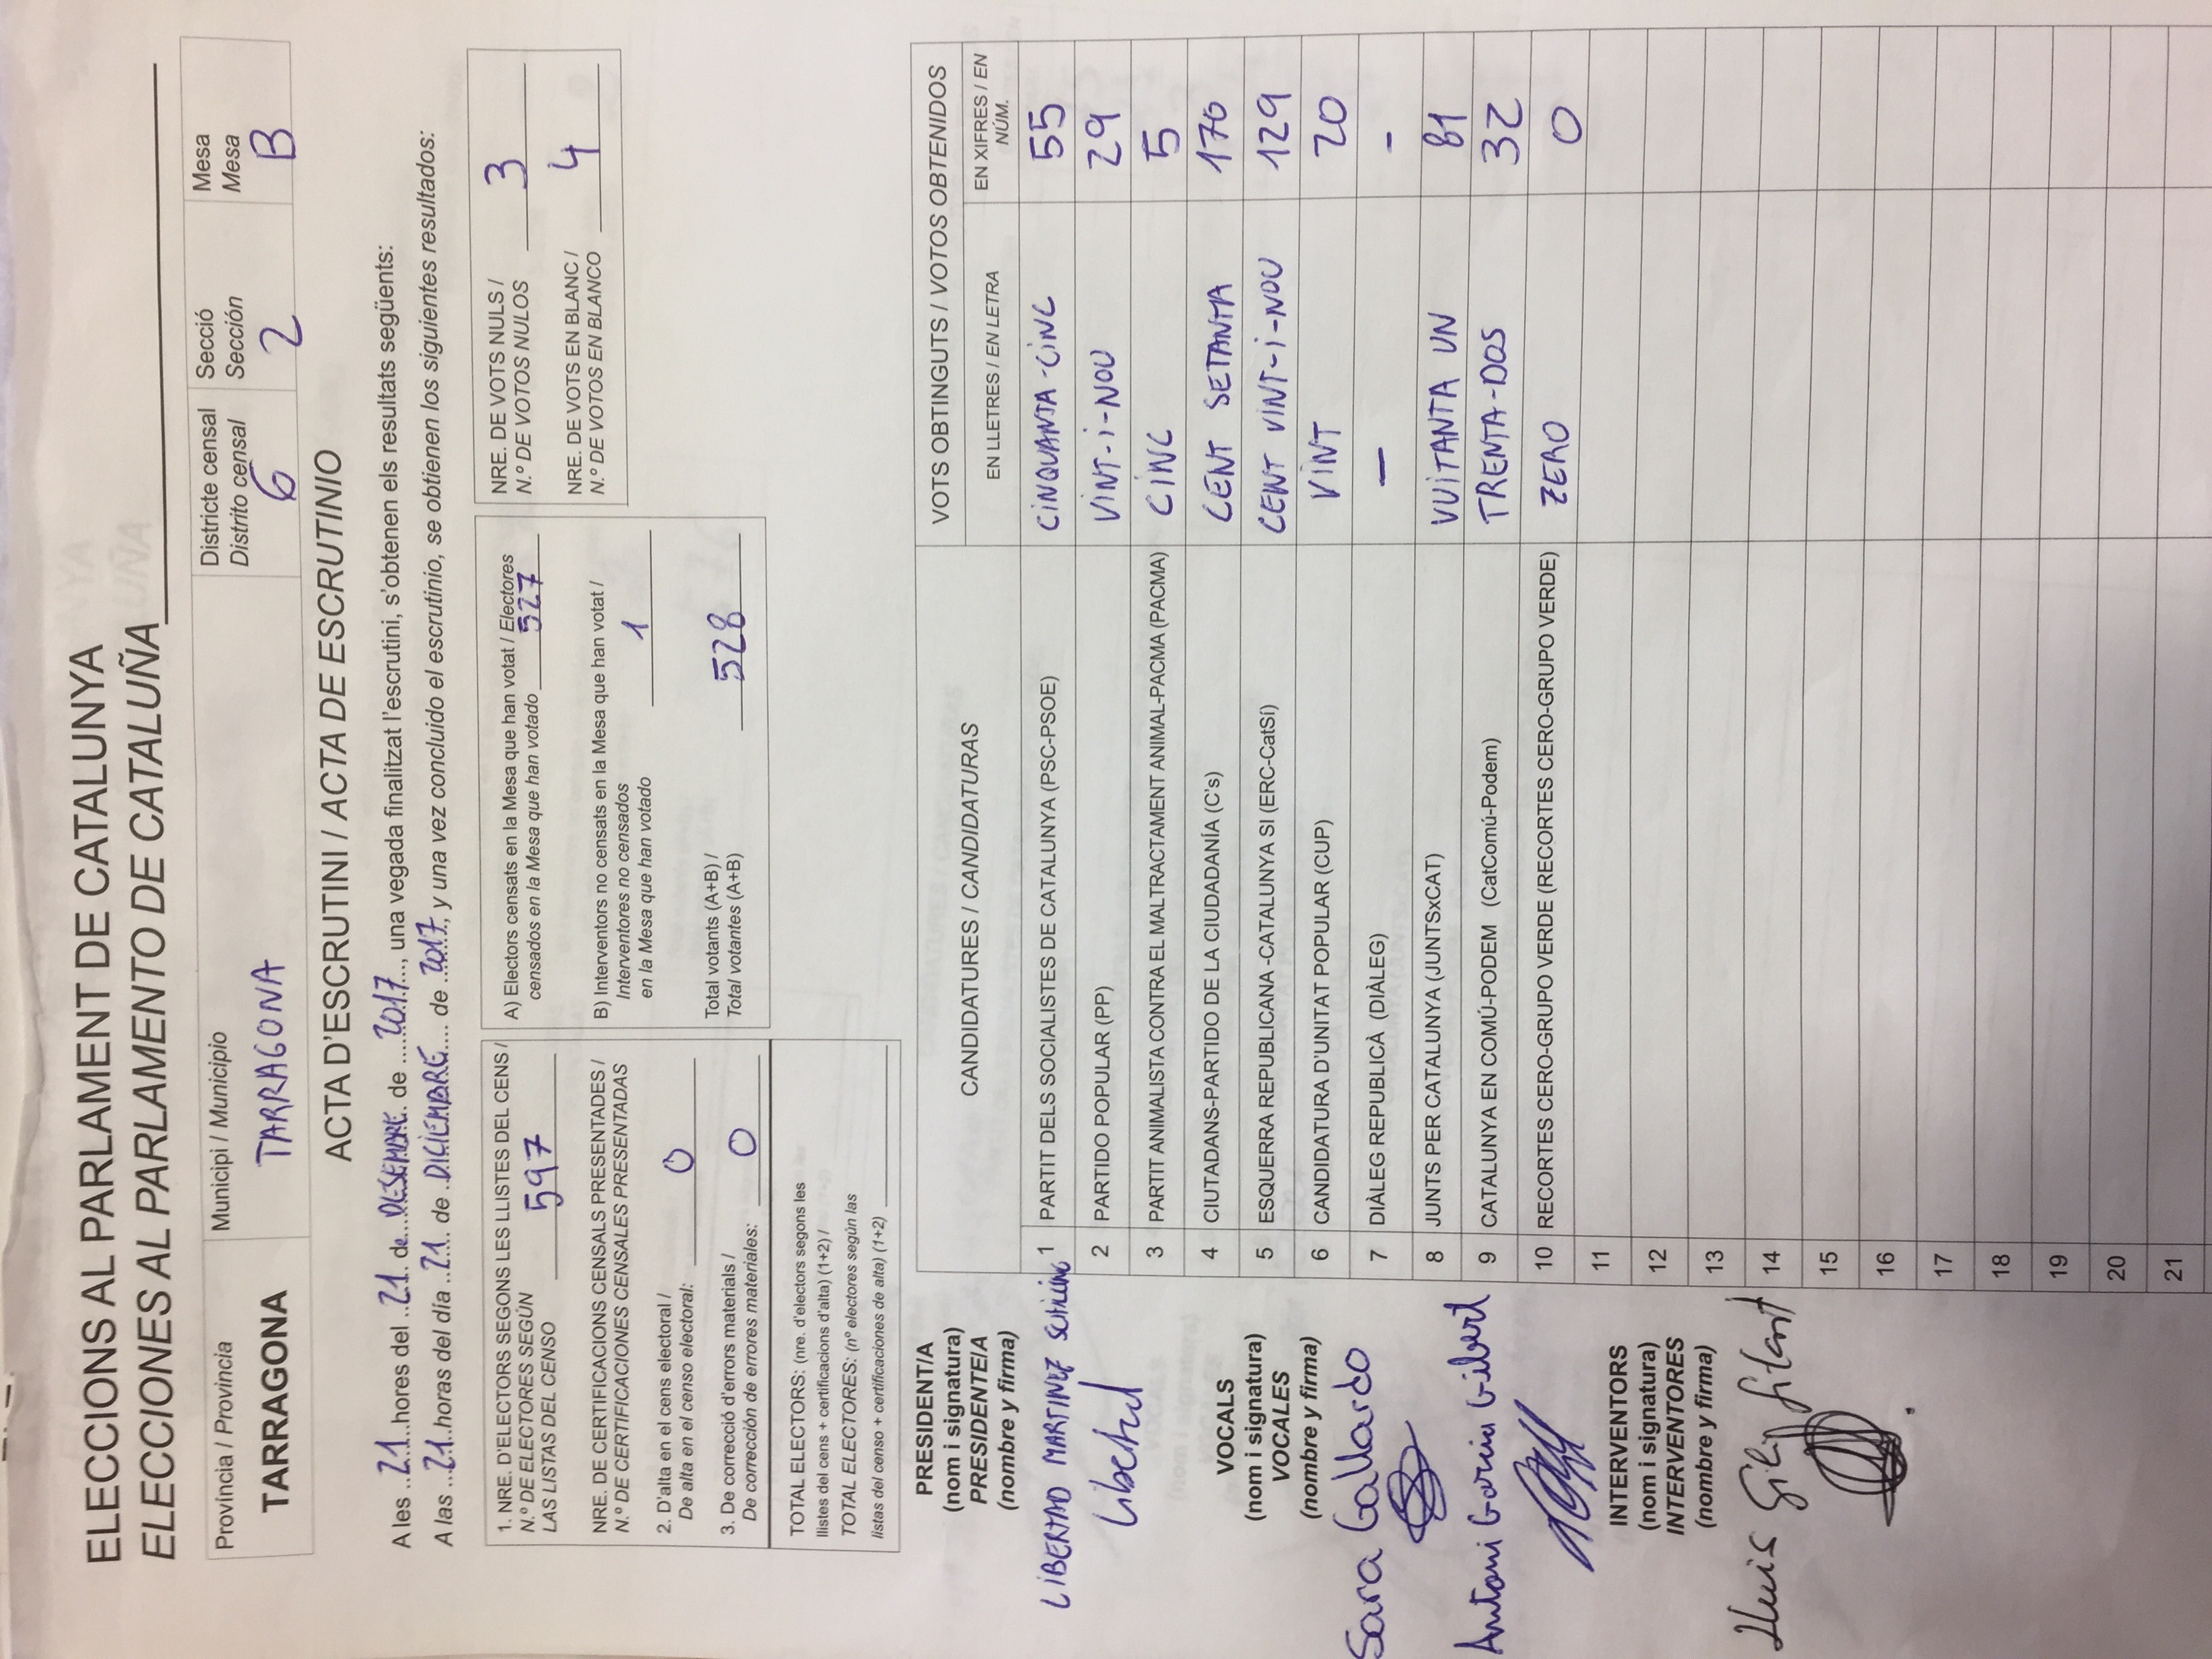 ELECCIONS AL PARLAMENT DE CATALUNYA
ELECCIONES AL PARLAMENTO DE CATALUÑA
Província / Provincia
TARRAGONA
Municipi / Municipio
TARRAGONA
Districte censal
Distrito censal
6
Secció
Sección
2
Mesa
Mesa
B
ACTA D'ESCRUTINI / ACTA DE ESCRUTINIO
A les 21 hores del 21 de DESEMBRE de 2017, una vegada finalitzat l'escrutini, s'obtenen els resultats següents:
A las 21 horas del día 21 de DICIEMBRE de 2017, y una vez concluido el escrutinio, se obtienen los siguientes resultados:
1. NRE. D'ELECTORS SEGONS LES LLISTES DEL CENS /
N.º DE ELECTORES SEGÚN
LAS LISTAS DEL CENSO 597
NRE. DE CERTIFICACIONS CENSALS PRESENTADES /
N.º DE CERTIFICACIONES CENSALES PRESENTADAS
2. D'alta en el cens electoral /
De alta en el censo electoral: 0
3. De correcció d'errors materials /
De corrección de errores materiales: 0
TOTAL ELECTORS: (nre. d'electors segons les
llistes del cens + certificacions d'alta) (1+2) /
TOTAL ELECTORES: (nº electores según las
listas del censo + certificaciones de alta) (1+2)
A) Electors censats en la Mesa que han votat / Electores
censados en la Mesa que han votado 527
B) Interventors no censats en la Mesa que han votat /
Interventores no censados
en la Mesa que han votado 1
Total votants (A+B) /
Total votantes (A+B) 528
NRE. DE VOTS NULS /
N.º DE VOTOS NULOS 3
NRE. DE VOTS EN BLANC /
N.º DE VOTOS EN BLANCO 4
PRESIDENT/A
(nom i signatura)
PRESIDENTE/A
(nombre y firma)
LIBERTAD MARTINEZ
Libertad
VOCALS
(nom i signatura)
VOCALES
(nombre y firma)
Sara Gallardo
Antoni Garcia Gibert
INTERVENTORS
(nom i signatura)
INTERVENTORES
(nombre y firma)
Lluis
CANDIDATURES / CANDIDATURAS
VOTS OBTINGUTS / VOTOS OBTENIDOS
EN LLETRES / EN LETRA
EN XIFRES / EN
NÚM.
1 PARTIT DELS SOCIALISTES DE CATALUNYA (PSC-PSOE) CINQUANTA-CINC 55
2 PARTIDO POPULAR (PP) VINT-i-NOU 29
3 PARTIT ANIMALISTA CONTRA EL MALTRACTAMENT ANIMAL-PACMA (PACMA) CINC 5
4 CIUTADANS-PARTIDO DE LA CIUDADANÍA (C's) CENT SETANTA 170
5 ESQUERRA REPUBLICANA -CATALUNYA SI (ERC-CatSí) CENT VINT-i-NOU 129
6 CANDIDATURA D'UNITAT POPULAR (CUP) VINT 20
7 DIÀLEG REPUBLICÀ (DIÀLEG) — -
8 JUNTS PER CATALUNYA (JUNTSxCAT) VUITANTA UN 81
9 CATALUNYA EN COMÚ-PODEM (CatComú-Podem) TRENTA-DOS 32
10 RECORTES CERO-GRUPO VERDE (RECORTES CERO-GRUPO VERDE) ZERO 0
11
12
13
14
15
16
17
18
19
20
21